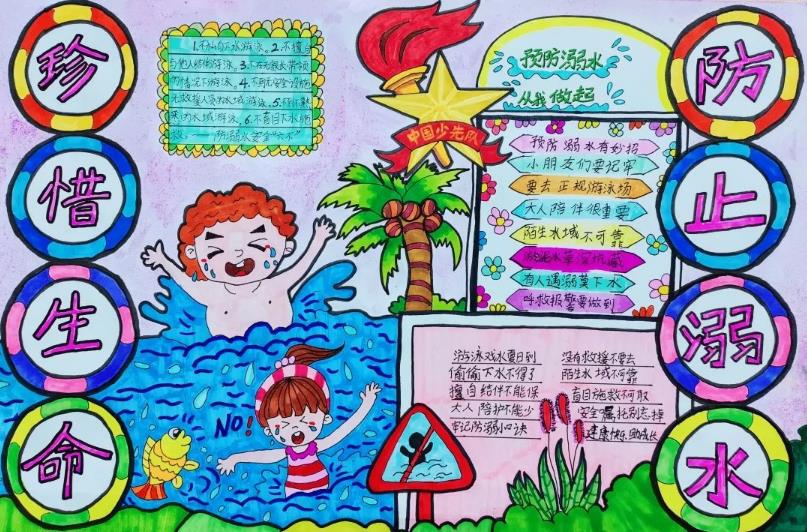 珍
惜
生
命
1.不私自下水游泳。2.不擅自
与他人结伴游泳。3.不在无家长带领
的情况下游泳。4.不到无安全设施
无救援人员的水域游泳。5.不到不熟
来的水域游泳。6.不盲目下水施
救。——防溺水安全"六不"
中国少先队
预防溺水
从我做起
预防溺水有妙招
小朋友们要记牢
要去正规游泳场
大人陪伴很重要
陌生水域不可靠
有人遇溺莫下水
呼救报警要做到
游泳戏水夏日到
偷偷下水不得了
擅自结伴不能保
大人陪护不能少
牢记防溺小口诀
没有救援不要去
陌生水域不可靠
盲目施救不可取
安全嘱托别忘掉
健康快乐助成长
NO!
防
止
溺
水